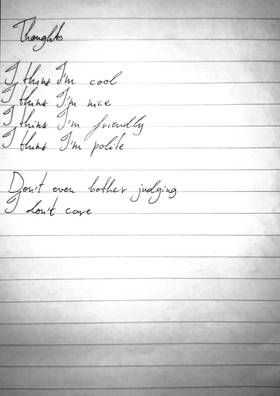 Thoughts
I think I'm cool
I think I'm nice
I think I'm friendly
I think I'm polite
Don't even bother judging
I don't care